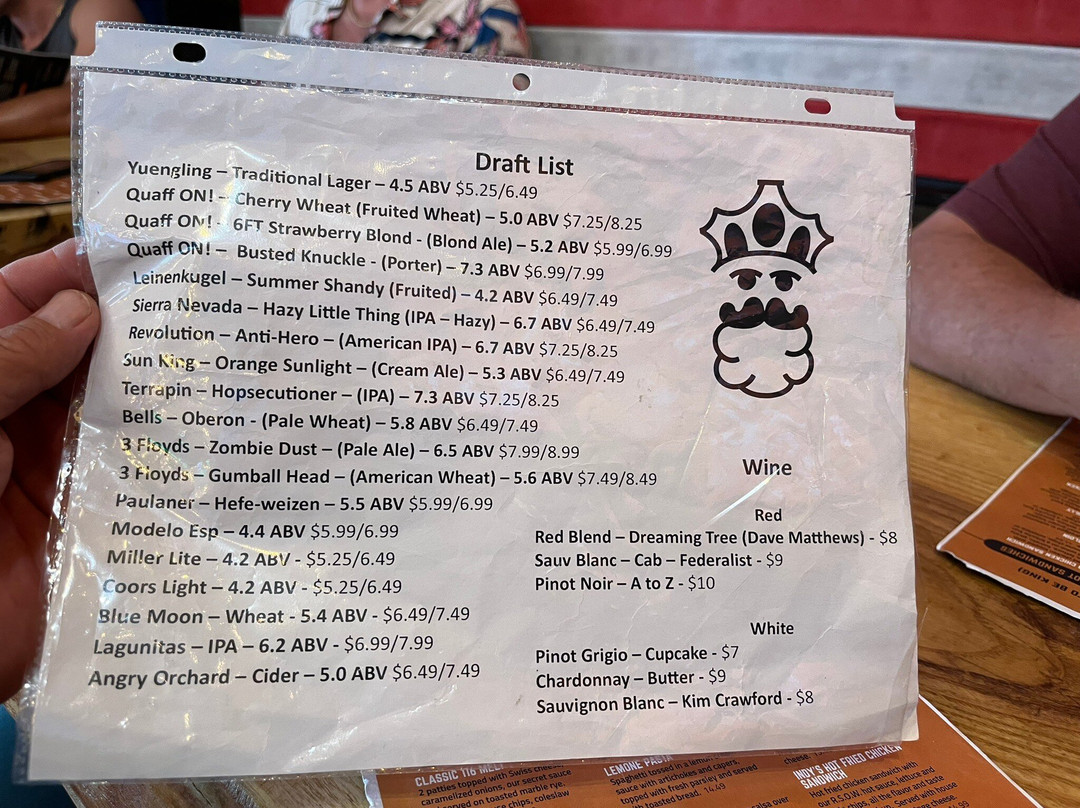 Draft List
Yuengling – Traditional Lager – 4.5 ABV $5.25/6.49
Quaff ON! – Cherry Wheat (Fruited Wheat) – 5.0 ABV $7.25/8.25
Quaff ON! - 6FT Strawberry Blond - (Blond Ale) – 5.2 ABV $5.99/6.99
Quaff ON! – Busted Knuckle - (Porter) – 7.3 ABV $6.99/7.99
Leinenkugel – Summer Shandy (Fruited) – 4.2 ABV $6.49/7.49
Sierra Nevada – Hazy Little Thing (IPA – Hazy) – 6.7 ABV $6.49/7.49
Revolution – Anti-Hero – (American IPA) – 6.7 ABV $7.25/8.25
Sun King – Orange Sunlight – (Cream Ale) – 5.3 ABV $6.49/7.49
Terrapin – Hopsecutioner – (IPA) – 7.3 ABV $7.25/8.25
Bells – Oberon - (Pale Wheat) – 5.8 ABV $6.49/7.49
3 Floyds – Zombie Dust – (Pale Ale) – 6.5 ABV $7.99/8.99
3 Floyds – Gumball Head – (American Wheat) – 5.6 ABV $7.49/8.49
Paulaner – Hefe-weizen – 5.5 ABV $5.99/6.99
Modelo Esp – 4.4 ABV $5.99/6.99
Miller Lite – 4.2 ABV - $5.25/6.49
Coors Light – 4.2 ABV - $5.25/6.49
Blue Moon – Wheat - 5.4 ABV - $6.49/7.49
Lagunitas – IPA – 6.2 ABV - $6.99/7.99
Angry Orchard – Cider – 5.0 ABV $6.49/7.49
Wine
Red
Red Blend – Dreaming Tree (Dave Matthews) - $8
Sauv Blanc – Cab – Federalist - $9
Pinot Noir – A to Z - $10
White
Pinot Grigio – Cupcake - $7
Chardonnay – Butter - $9
Sauvignon Blanc – Kim Crawford - $8
CLASSIC 116 MELT
2 patties topped with Swiss cheese
caramelized onions, our secret sauce
served on toasted marble rye.
chips, coleslaw
LEMONE PASTA
Spaghetti tossed in a lemon
sauce with artichokes and capers,
topped with fresh parsley and served
with toasted bread. 14.49
cheese.
INDY'S HOT FRIED CHICKEN
SANDWICH
Hot fried chicken sandwich with
our R.S.O.W. hot sauce, lettuce and
chips, all the flavor and taste
served with house
SANDWICHES